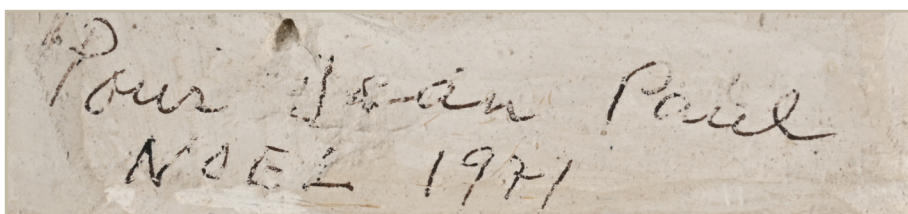 Pour Jean Paul
NOEL 1971